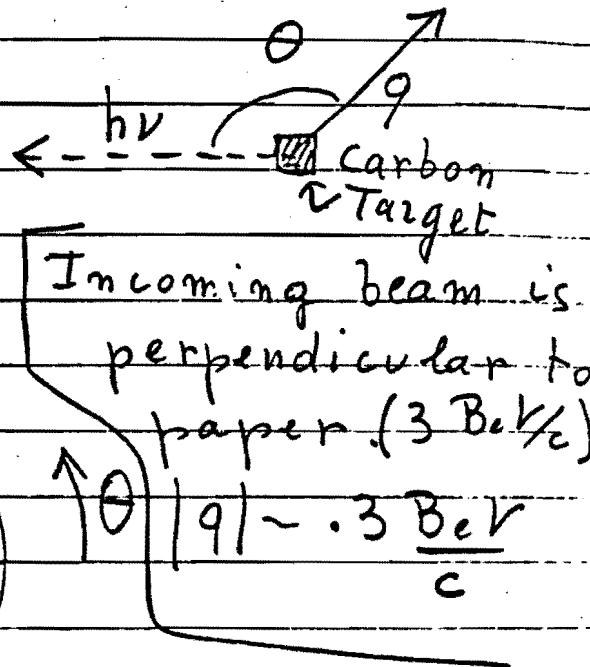 θ
hν q
Carbon
Target
Incoming beam is
perpendicular to
paper. (3 BeV/c)
θ |q| ~ .3 BeV
c